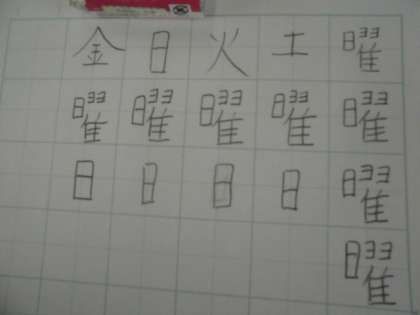 曜曜曜曜
土曜日
火曜日
日曜日
金曜日